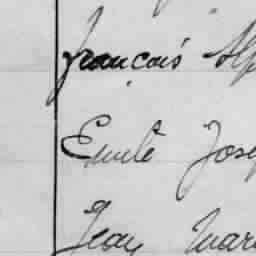 françois Alp
Emile Jose
Jean Mari